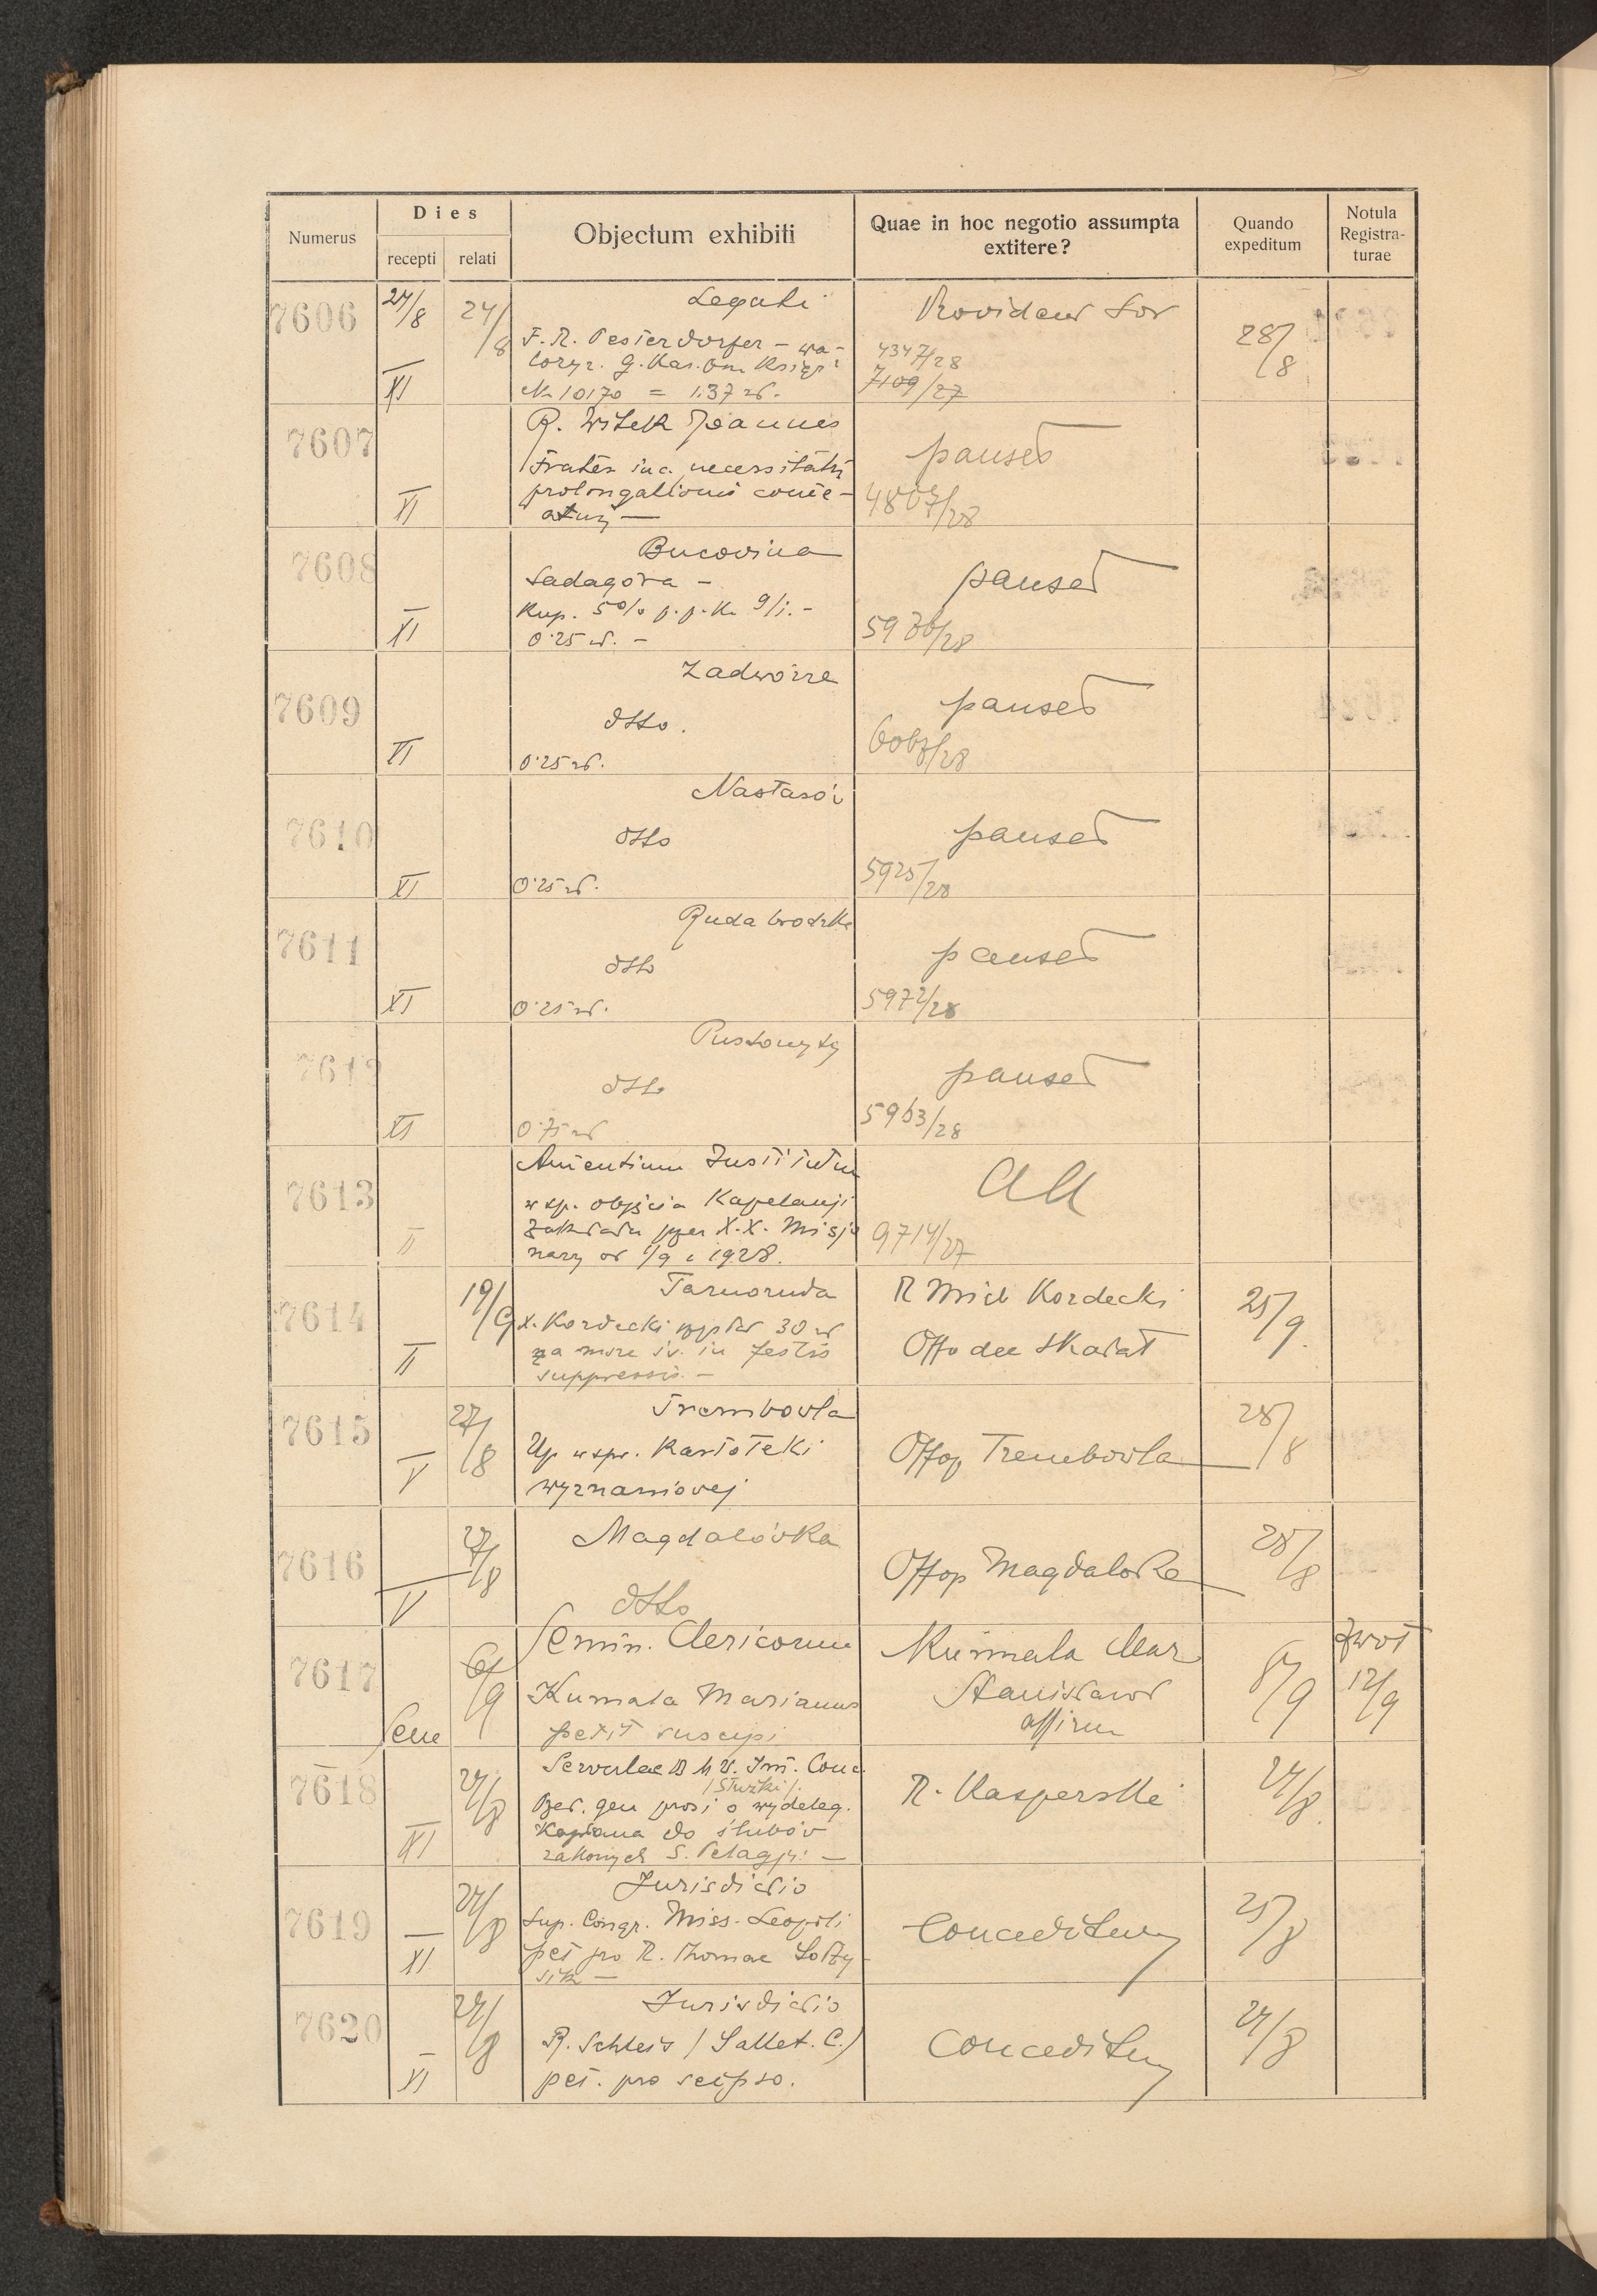 Numerus
Dies
recepti
relati
Objectum exhibiti
Quae in hoc negotio assumpta
extitere?
Quando
expeditum
Notula
Registra-
turae
7606
24/8
24/8
XI
Legati
F. R. Pesierdorfer - wa-
loryz. G. Kas.
No 10170 = 1.37 zł.
4347/28
7109/27
28/8
7607
XI
R. Witek Joannes
Frater
necessitatis
prolongationis come-
atus -
pauset
4807/28
7608
XI
Bucovina
Sadagóra -
Kup. 5% p.p.K. 9/i. -
0.25 zł. -
pauset
59 /28
7609
XI
Zadwórze
dtto.
0.25 zł.
pauset
6067/28
7610
XI
Nastasó
dtto
0.25 zł.
pauset
5925/28
7611
XI
Ruda brodzka
dtto
0.25 zł.
pauset
5972/28
7612
XI
Pustomyty
dtto
0.75 zł
pauset
5963/28
7613
II
Amentium Institutum
w sp. objęcia Kapelanji
zakładu przez X.X. Misjo
narzy od 1/9 1928.
aa
9714/27
7614
II
19/9
Tarnoruda
X. Kordecki 30 zł
za msze św. in festis
suppressis. -
R Mich Kordecki
Offo dec Skałat
25/9.
7615
V
27/8
Trembowla
Up w spr. Kartoteki
wyznaniowej
Offop Trembowla
28/8
7616
V
27/8
Magdalówka
dtto
Offop Magdalowka
28/8
7617
Sem
6/9
Semin. Clericorum
Kumala Marianus
petit suscipi
Kumala Mar
Stanisławów
8/9
zwrot
12/9
7618
XI
24/8
Servulae B M V. Im. Conc.
/Służki/.
Przeł. gen prosi o wydeleg.
Kapłana do ślubów
zakonnych S. Pelagji. -
R. Kasperski
24/8
7619
XI
24/8
Jurisdictio
Sup. Congr. Miss. Leopoli
pet pro R. Thomae Sołty
sik -
Conceditur
25/8
7620
XI
24/8
Jurisdictio
R. Schleis / Sallet. C./
pet. pro seipso.
Conceditur
24/8